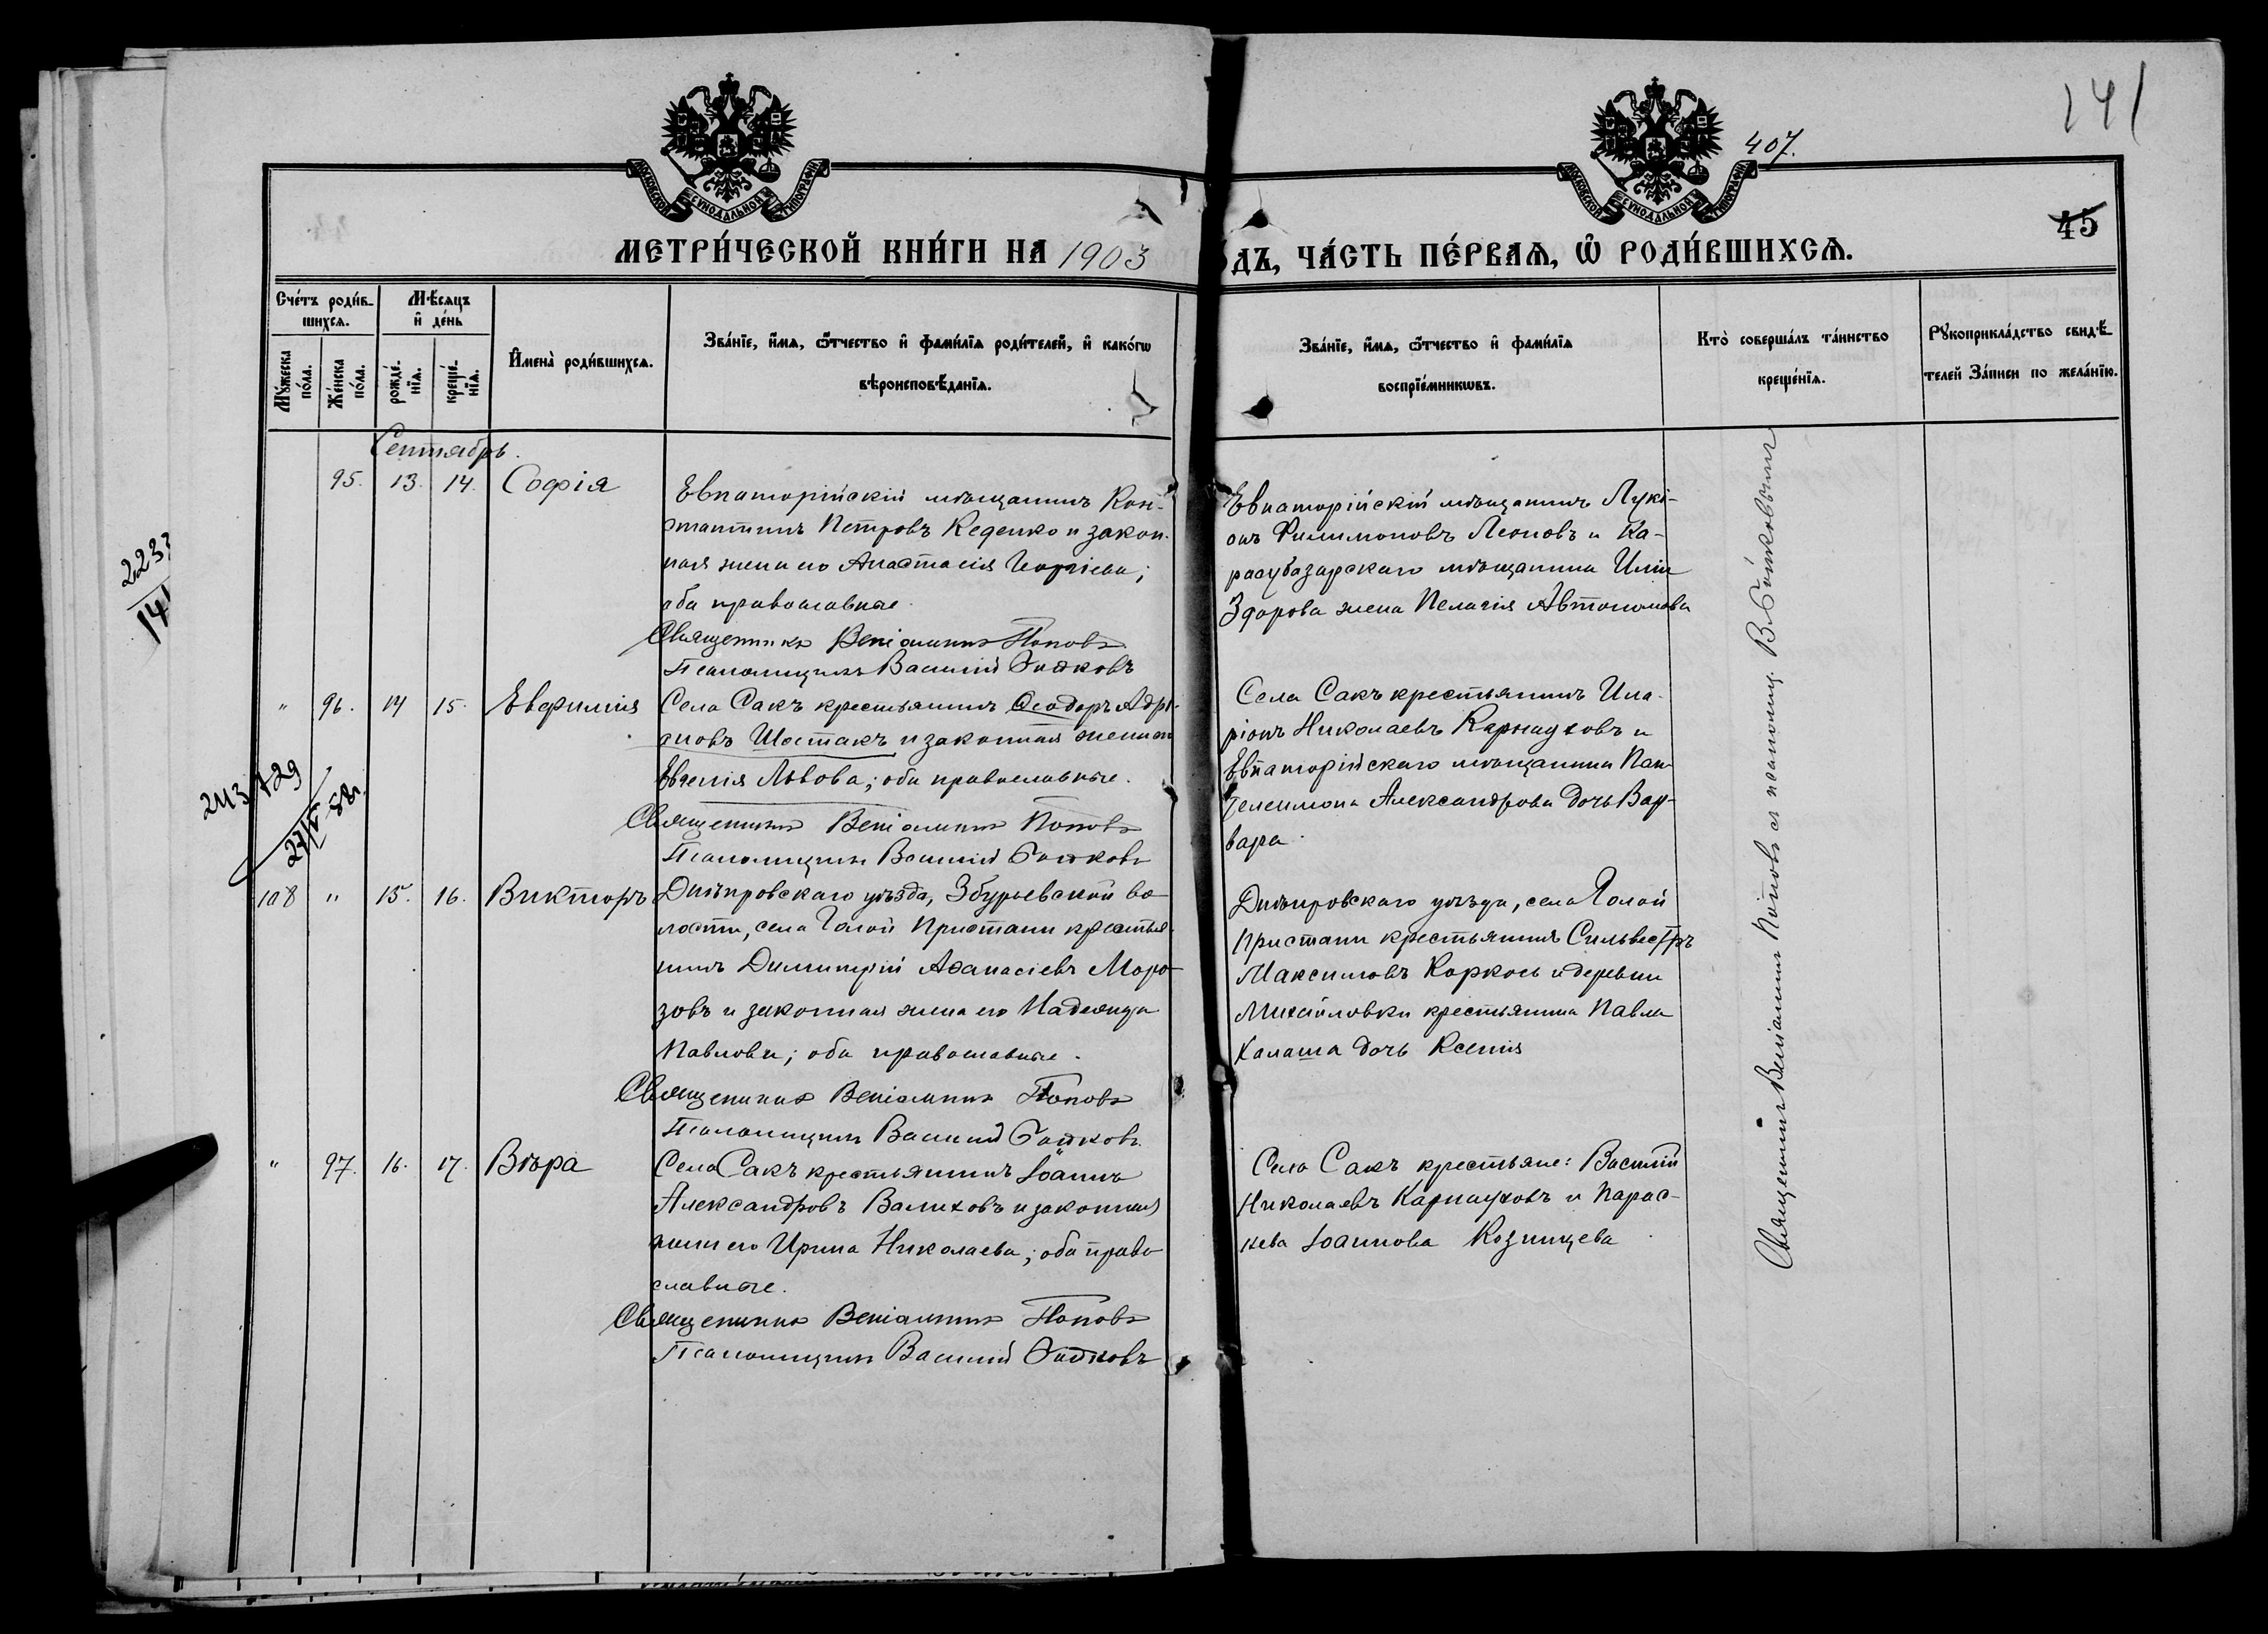 141
407.
45
МОСКОВСКОЙ СУНОДАЛЬНОЙ ТИПОГРАФІИ
МОСКОВСКОЙ СУНОДАЛЬНОЙ ТИПОГРАФІИ
МЕТРИ́ЧЕСКОЙ КНИ́ГИ НА 1903
ДЪ, ЧА́СТЬ ПЕ́РВАѦ, Ѡ҆ РОДИ́ВШИХСѦ.
Сче́тъ роди́в-
шихсѧ.
Мѣ́сѧцъ
и҆ де́нь
Мꙋ́жеска по́ла.
Же́нска по́ла.
рожде́-
нїѧ.
креще́-
нїѧ.
И҆мена̀ роди́вшихсѧ.
Зва́нїе, и҆́мѧ, ѻ҆́тчество и҆ фами́лїѧ роди́телей, и҆ како́гѡ
вѣроисповѣ́данїѧ.
Зва́нїе, и҆́мѧ, ѻ҆́тчество и҆ фами́лїѧ
воспрїе́мникѡвъ.
Кто̀ соверша́лъ та́инство
креще́нїѧ.
Рꙋкоприкла́дство свидѣ́-
телей За́писи по жела́нїю.
Сентябрь.
95. 13. 14. Софія
Евпаторійскій мѣщанинъ Кон-
стантинъ Петровъ Кеденко и закон-
ная жена его Анастасія Георгіева;
оба православные.
Священникъ Веніаминъ Поповъ
Псаломщикъ Василій
Евпаторійскій мѣщанинъ Лукі-
анъ Филимоновъ Леоновъ и Ка-
расубазарскаго мѣщанина Иліи
Здорова жена Пелагія Автономова
223
141
" 96. 14 15. Евфимія
Села Сакъ крестьянинъ Ѳеодоръ Адрі-
ановъ Шостакъ и законная жена его
Евгенія Львова; оба православные.
Священникъ Веніаминъ Поповъ
Псаломщикъ Василій
Села Сакъ крестьянинъ Ила-
ріонъ Николаевъ Карнауховъ и
Евпаторійскаго мѣщанина Пан-
телеимона Александрова дочь Вар-
вара.
243/729
27/V 58г.
108 " 15. 16. Викторъ
Днѣпровскаго уѣзда, Збурьевской во-
лости, села Голой Пристани крестья-
нинъ Димитрій Аѳанасіевъ Моро-
зовъ и законная жена его Надежда
Павлова; оба православные.
Священникъ Веніаминъ Поповъ
Псаломщикъ Василій
Днѣпровскаго уѣзда, села Голой
Пристани крестьянинъ Сильвестръ
Максимовъ Коркось и деревни
Михайловки крестьянина Павла
Калаша дочь Ксенія
" 97. 16. 17. Вѣра
Села Сакъ крестьянинъ Іоаннъ
Александровъ Валиховъ и законная
жена его Ирина Николаева; оба право-
славные.
Священникъ Веніаминъ Поповъ
Псаломщикъ Василій
Села Сакъ крестьяне: Василій
Николаевъ Карнауховъ и Парас-
кева Іоаннова Козницева
Священникъ Веніаминъ Поповъ съ псаломщ. В.